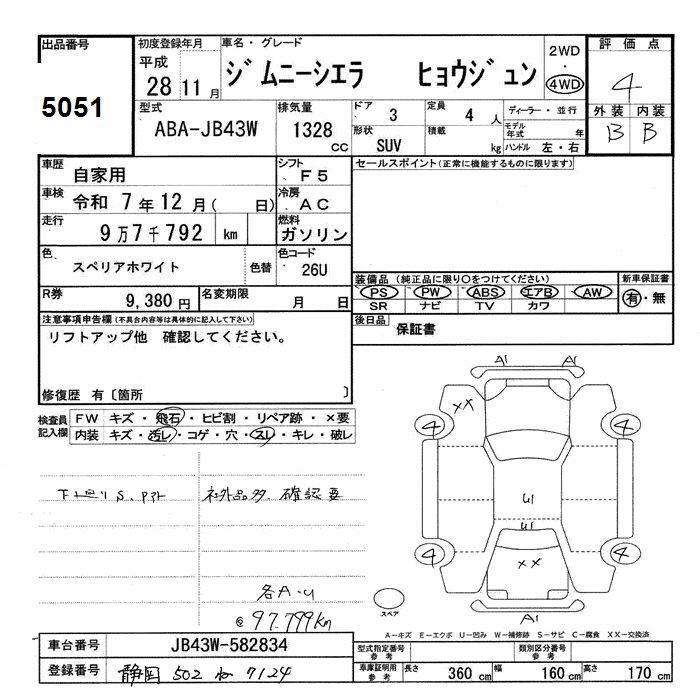 出品番号
5051
初度登録年月
平成
28 11 月
車名・グレード
ジムニーシエラ ヒョウジュン
2WD
・
4WD
評価点
4
型式
ABA-JB43W
排気量
1328
CC
ドア 3
定員 4 人
ディーラー・並行
形状 SUV
積載 kg
モデル年式 年
ハンドル 左・右
外装 内装
B B
車歴
自家用
シフト
F5
車検 令和 7 年 12 月( 日)
冷房
AC
走行
9万7千792 km
燃料
ガソリン
色
スペリアホワイト
色替
色コード
26U
R券 9,380 円
名変期限 月 日
セールスポイント(正常に機能するものに限ります)
装備品(純正品に限り○をつけてください)
PS PW ABS エアB AW
SR ナビ TV カワ
新車保証書
有・無
後日品 保証書
注意事項申告欄(不具合内容等は具体的に記入して下さい)
リフトアップ他 確認してください。
修復歴 有〔箇所 〕
検査員記入欄
FW キズ・飛石・ヒビ割・リペア跡・×要
内装 キズ・汚レ・コゲ・穴・スレ・キレ・破レ
下廻り S.
社外品多 確認要
各A.U
@97.799km
A1 A1
××
4 4
U1
U1
××
4 4
A1
スペア
A-キズ E-エクボ U-凹み W-補修跡 S-サビ C-腐食 XX-交換済
車台番号 JB43W-582834
登録番号 静岡 502 ね 7124
型式指定番号 参考
類別区分番号 参考
車庫証明用 参考
長さ 360 cm
幅 160 cm
高さ 170 cm